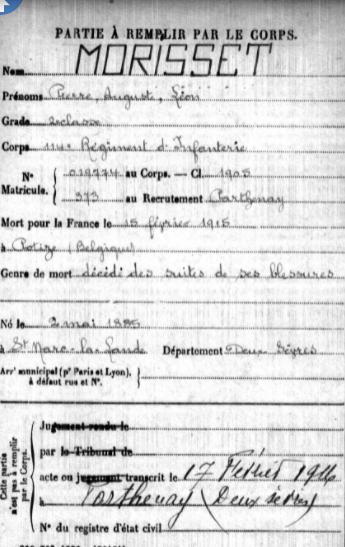 PARTIE À REMPLIR PAR LE CORPS.
MORISSET
Nom
Prénoms Pierre, August, Léon
Grade 2e classe
Corps 114e Régiment d'Infanterie
N° 019774 au Corps. — Cl. 1905
Matricule. 373 au Recrutement Parthenay
Mort pour la France le 15 février 1915
à (Belgique)
Genre de mort décidé des suites de ses blessures
Né le 2 mai 1885
à St Marc la Lande Département Deux Sèvres
Arrt municipal (pr Paris et Lyon),
à défaut rue et N°.
Cette partie
n'est pas à remplir
par le Corps.
Jugement rendu le
par le Tribunal de
acte ou jugement transcrit le 17 Février 1916
à Parthenay (Deux Sèvres)
N° du registre d'état civil